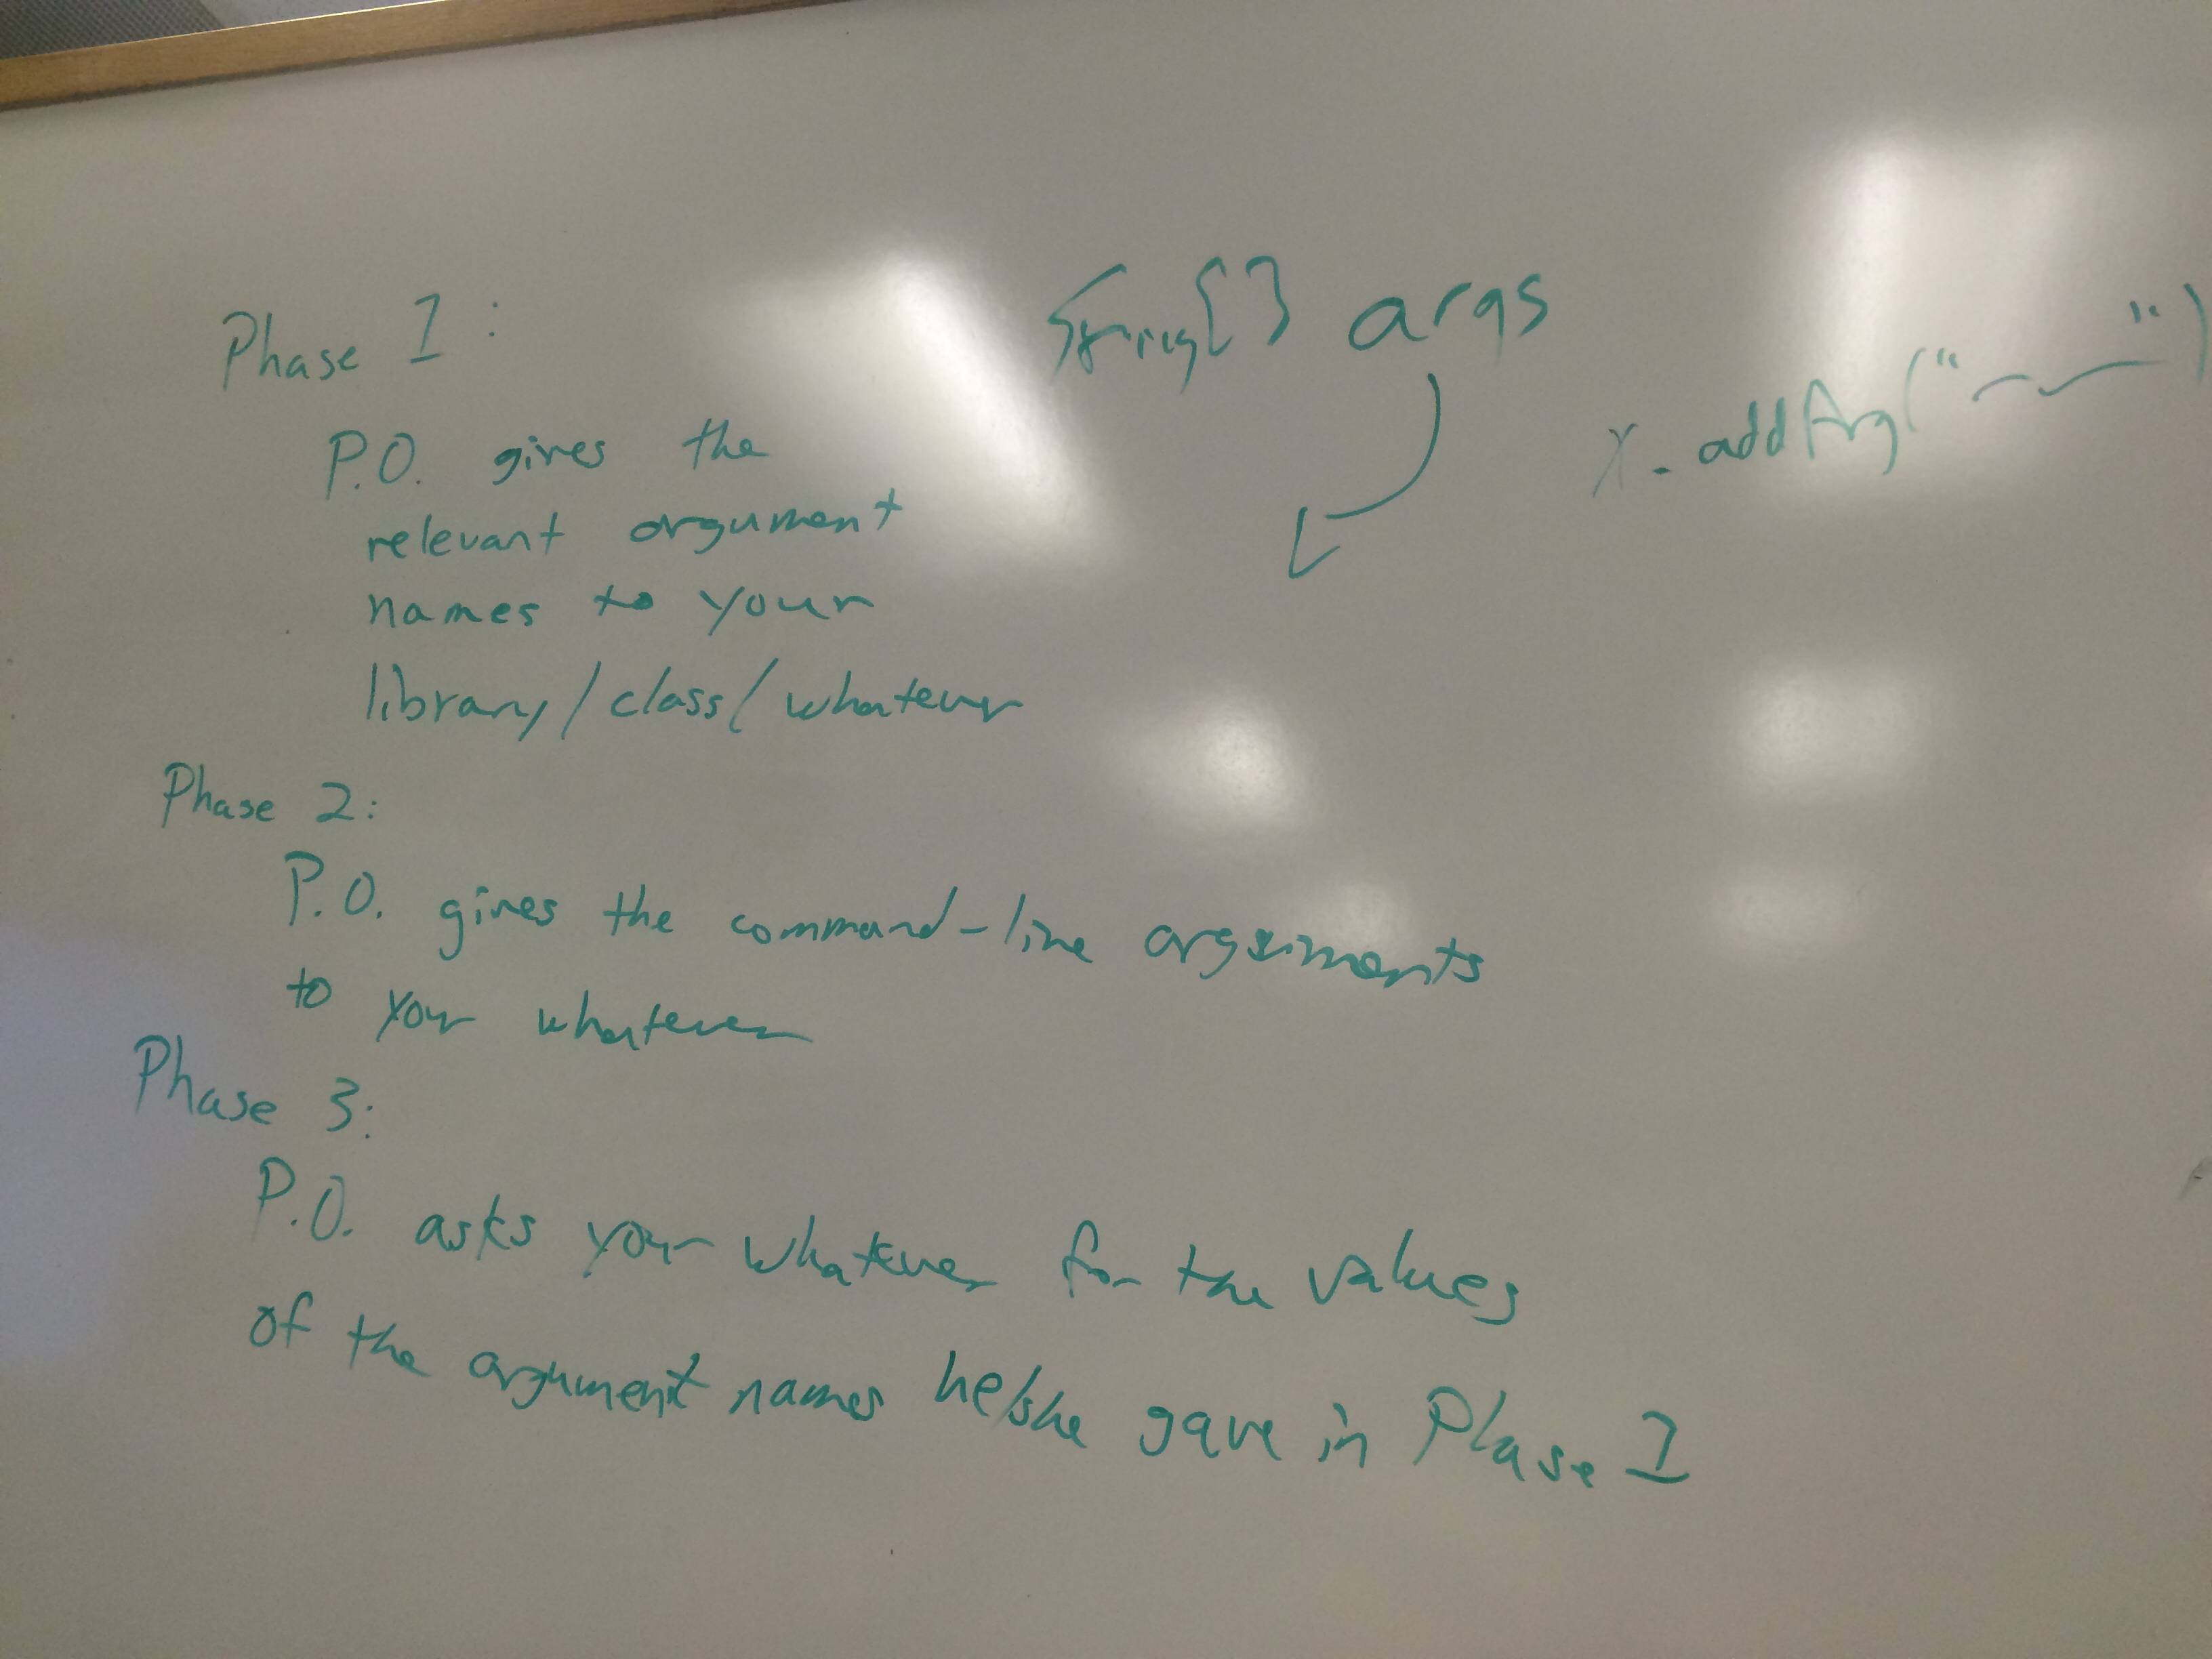 Phase 1:
P.O. gives the
relevant argument
names to your
library/class/whatever
String[] args
x.addArg("
")
Phase 2:
P.O. gives the command-line arguments
to your whatever
Phase 3:
P.O. asks your whatever for the values
of the argument names he/she gave in Phase 1